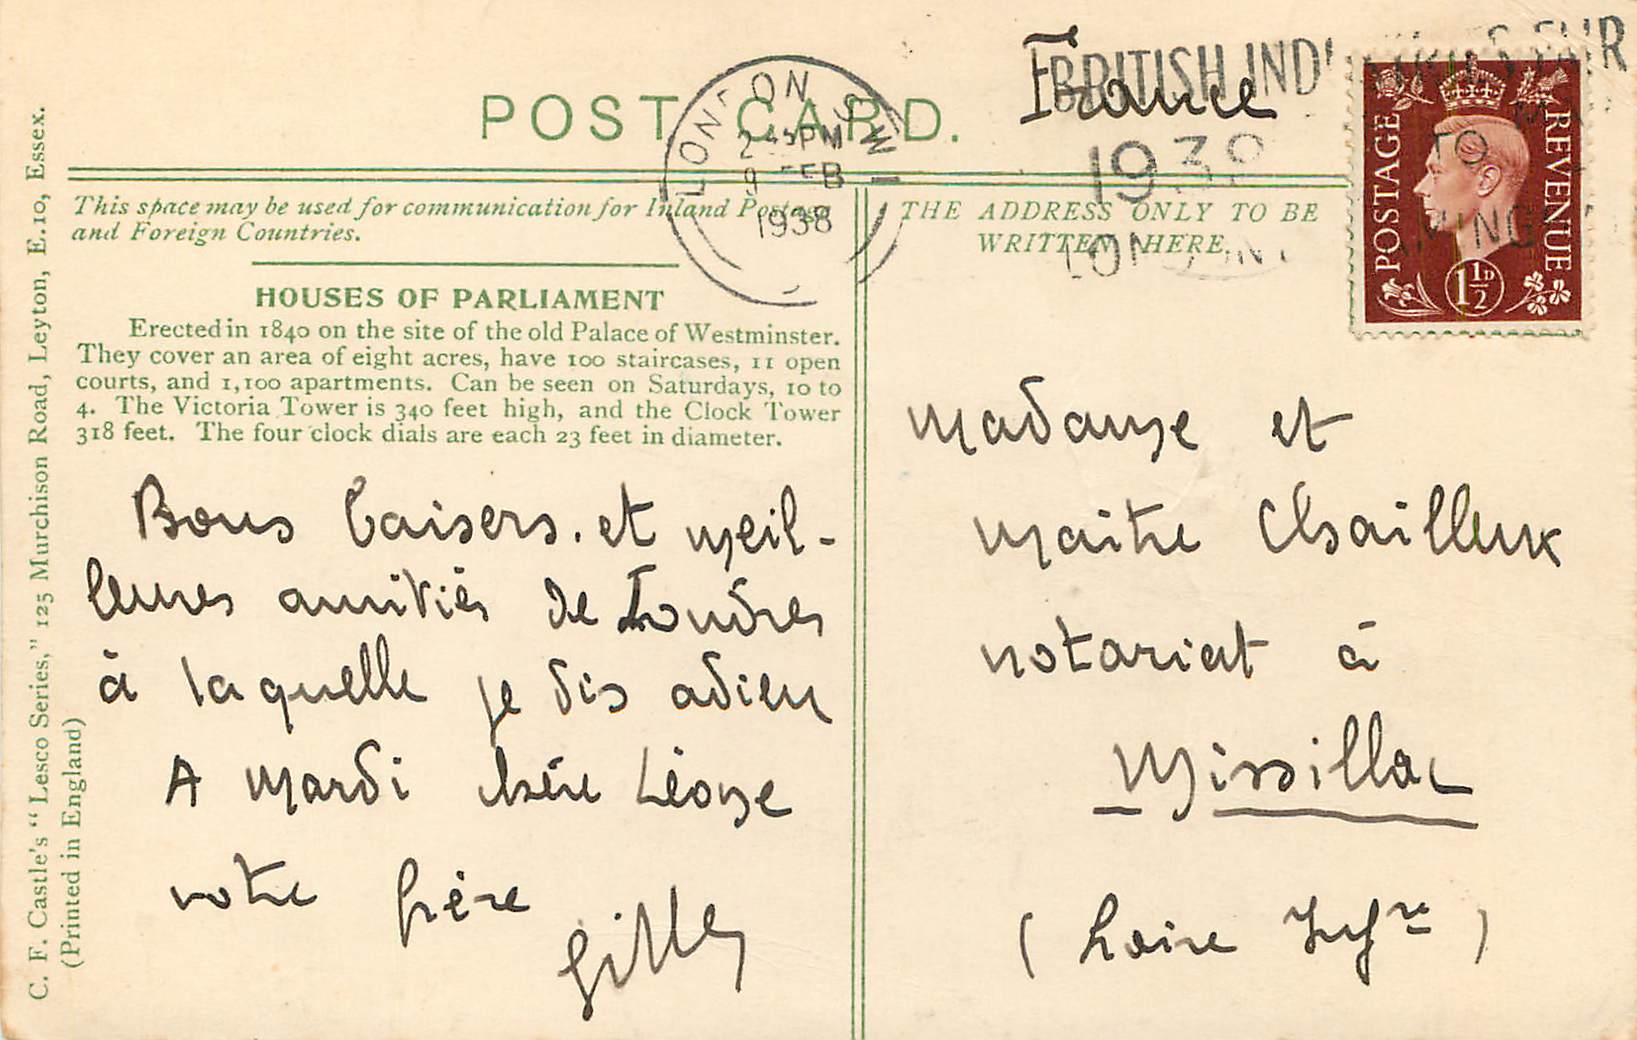 POST CARD.
France
LONDON S.W.1
2 45 PM
9 FEB
1938
BRITISH INDUSTRIES FAIR
1938
TO
LONDON
POSTAGE
REVENUE
1½D
This space may be used for communication for Inland Postage
and Foreign Countries.
THE ADDRESS ONLY TO BE
WRITTEN HERE.
HOUSES OF PARLIAMENT
Erected in 1840 on the site of the old Palace of Westminster.
They cover an area of eight acres, have 100 staircases, 11 open
courts, and 1,100 apartments. Can be seen on Saturdays, 10 to
4. The Victoria Tower is 340 feet high, and the Clock Tower
318 feet. The four clock dials are each 23 feet in diameter.
Bons baisers. et meil-
leures amitiés de Londres
à laquelle je dis adieu
A mardi chère Léone
votre frère
Gilles
Madame et
Maitre Chailleux
notariat à
Missillac
(Loire Infre)
C. F. Castle's "Lesco Series," 125 Murchison Road, Leyton, E.10, Essex.
(Printed in England)